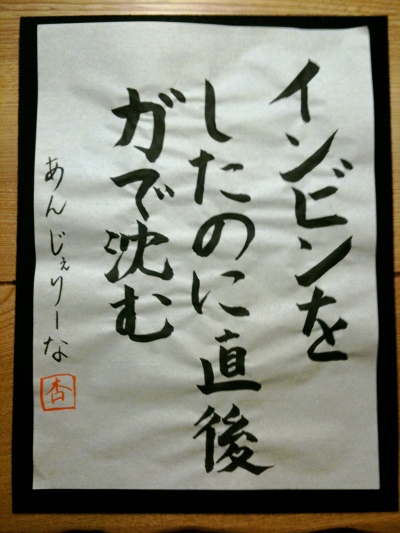 インビンを
したのに直後
ガで沈む
あんじぇりーな
杏